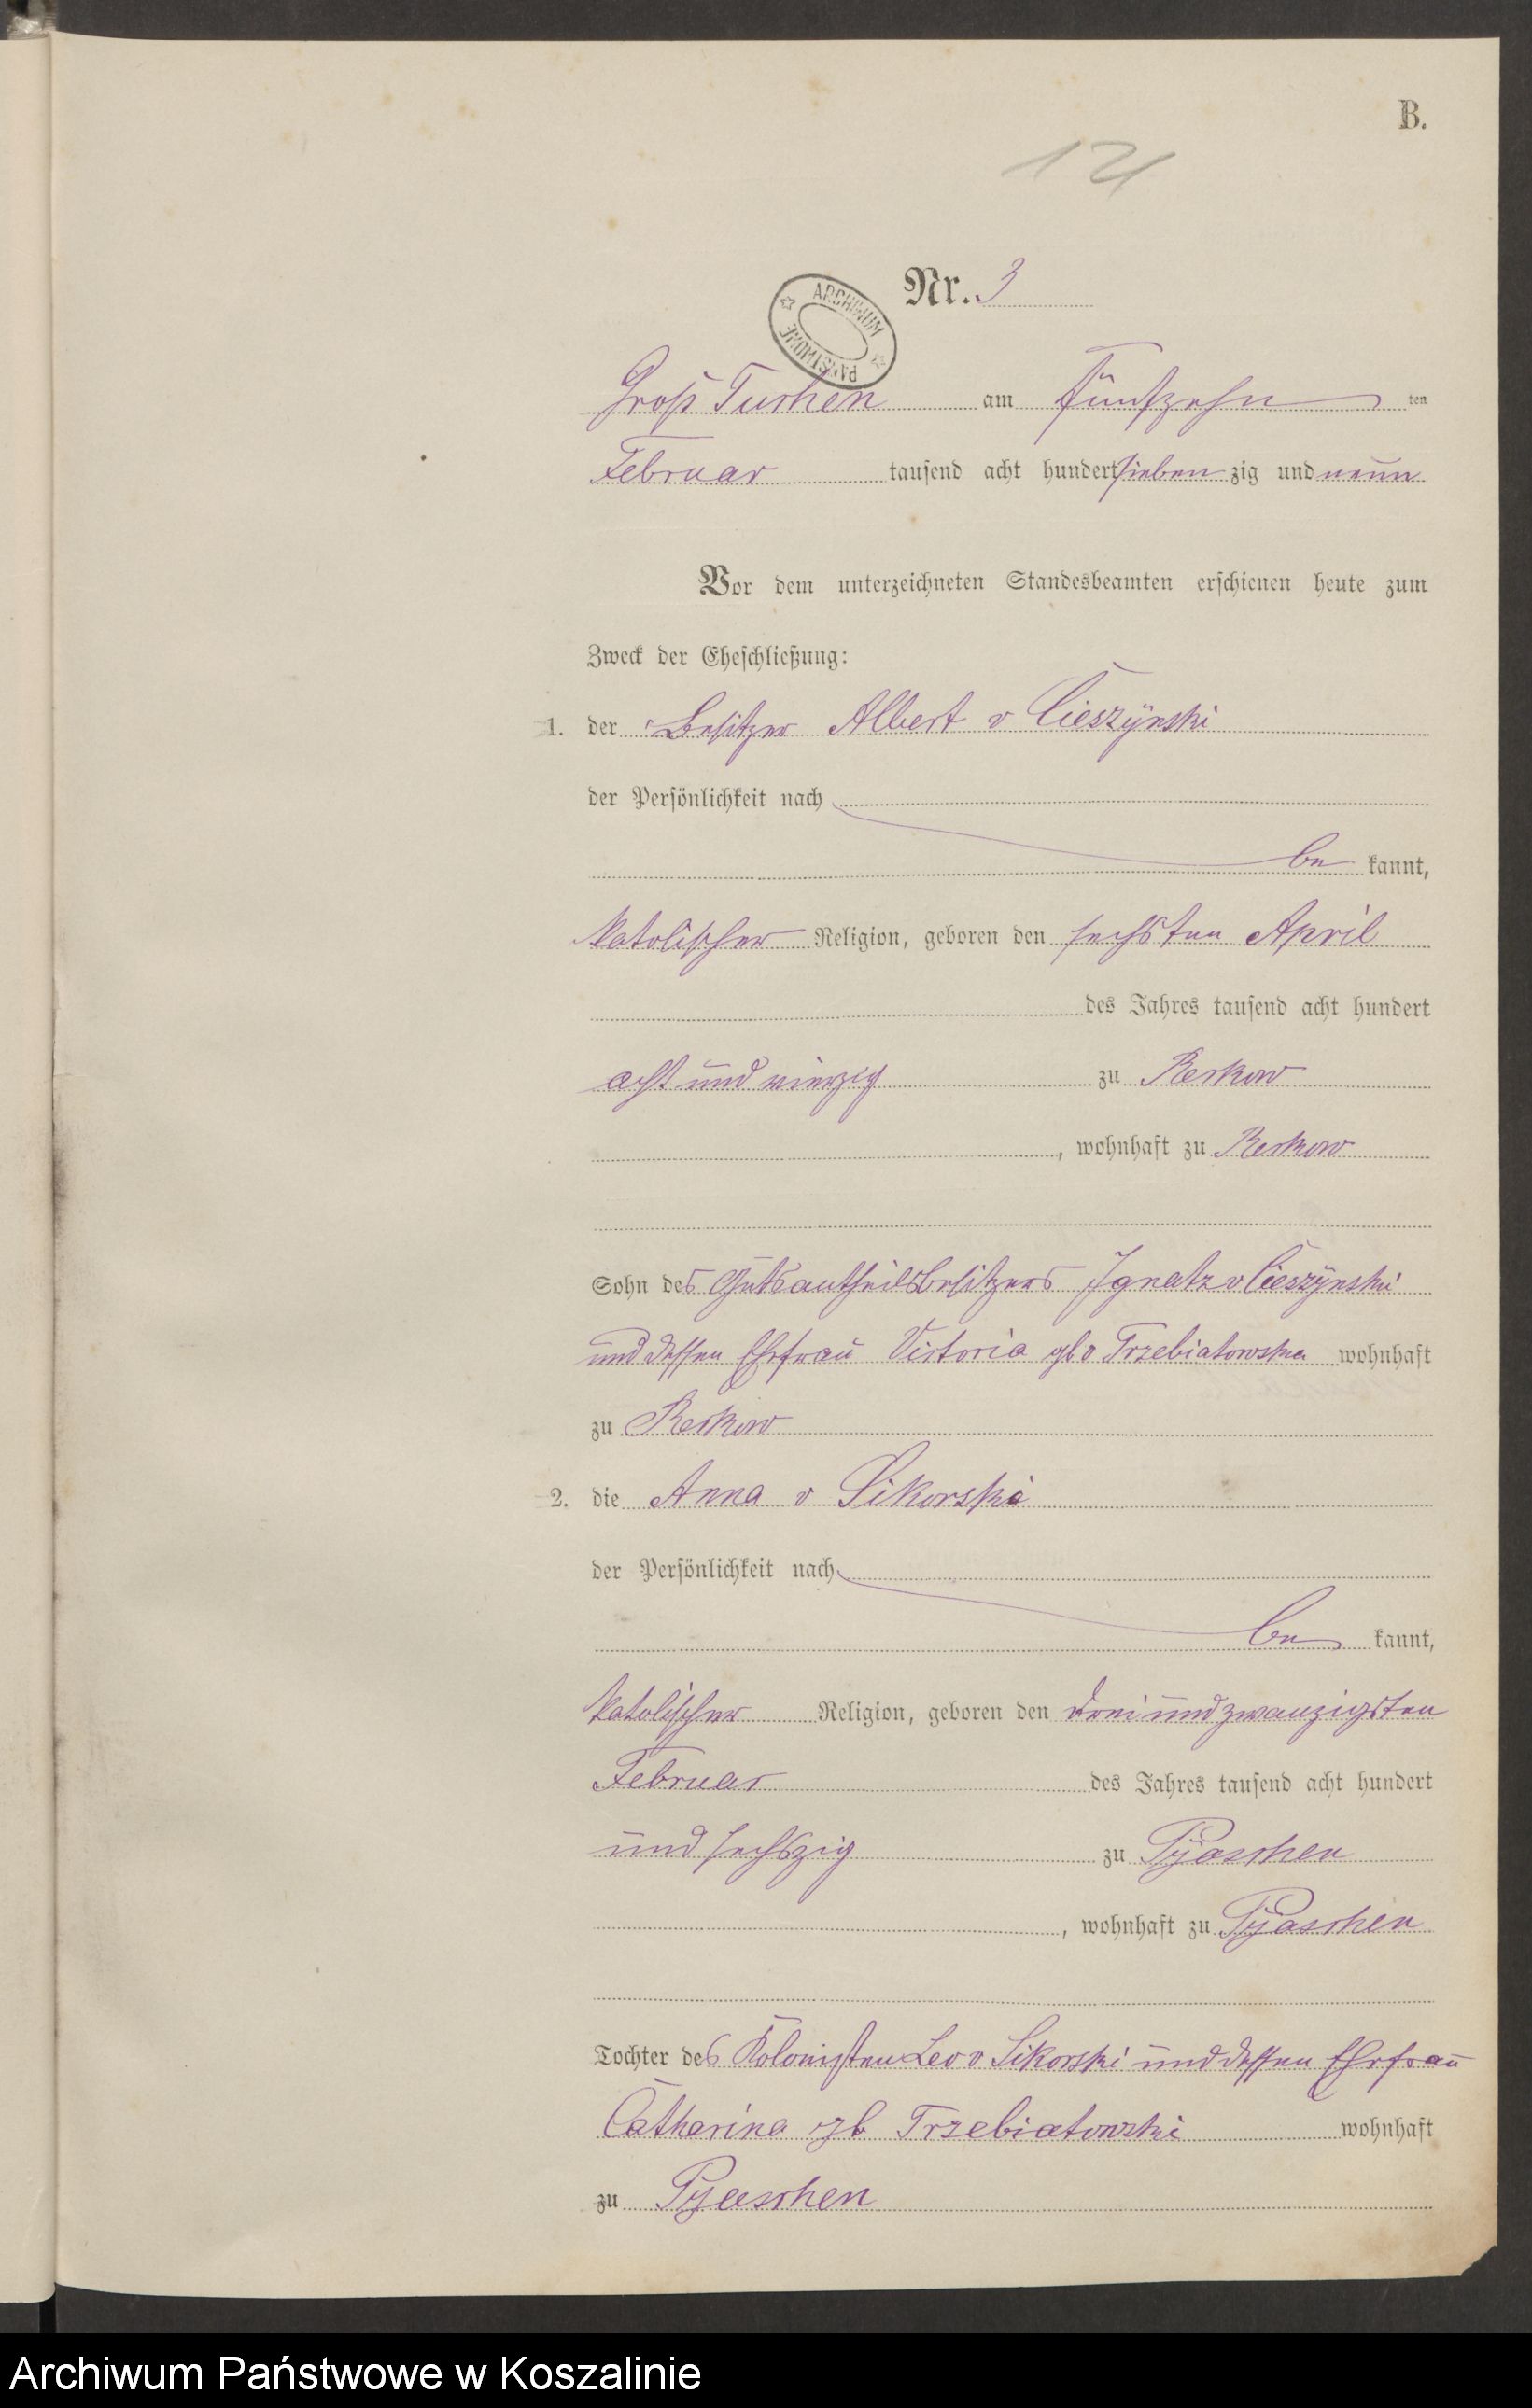 B.
121
Nr. 3
ARCHIWUM PAŃSTWOWE
Groß Tuchen am fünfzehn ten
Februar tausend acht hundert sieben zig und neun
Vor dem unterzeichneten Standesbeamten erschienen heute zum
Zweck der Eheschließung:
1. der Besitzer Albert v Cieszÿnski
der Persönlichkeit nach
be kannt,
katolischer Religion, geboren den sechsten April
des Jahres tausend acht hundert
acht und vierzig zu Reckow
, wohnhaft zu Reckow
Sohn des Gutsantheilsbesitzers Ignatz v Cieszÿnski
und dessen Ehefrau Victoria gb v Trzebiatowska wohnhaft
zu Reckow
2. die Anna v Sikorski
der Persönlichkeit nach
be kannt,
katolischer Religion, geboren den drei und zwanzigsten
Februar des Jahres tausend acht hundert
und sechszig zu Pÿaschen
, wohnhaft zu Pÿaschen
Tochter des Kolonisten Leo v Sikorski und dessen Ehefrau
Catharina gb Trzebiatowski wohnhaft
zu Pyaschen
Archiwum Państwowe w Koszalinie